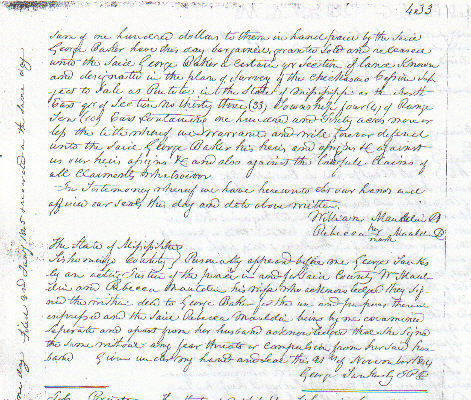 4033
sum of one hundred dollars to them in hand paid by the said
George Baker have this day bargained, granted sold and released
unto the said George Baker a certain qr Section of land Known
and designated in the plan of survey of the Chickasaw Cession sub
ject to sale as Pontotoc in the State of Mississippi as the North
East qr of Section No thirty three (33) Township four (4) of Range
Ten (10) East Containing one hundred and sixty acres more or
less the title whereof we warrant and will forever defend
unto the said George Baker his heirs and assigns &c against
us our heirs assigns &c and also against the lawfull claims of
all Claiments whatsoever
In Testimony whereof we have hereunto set our hands and
affixed our seals the day and date above written
William Mauldin
Rebecca her mark Mauldin
The State of Mississippi
Tishomingo County } Personally appeared before me George
an acting Justice of the peace in and for said County Wm Maul
din and Rebecca Mauldin his wife who acknowledged they sig
ned the within deed to George Baker for the use and purpose therein
expressed and the said Rebecca Mauldin being by me examined
seperate and apart from her husband acknowledged that she signed
the same without any fear threats or compulsion from her said hus
band Given under my hand and seal this 23 of November
George J P